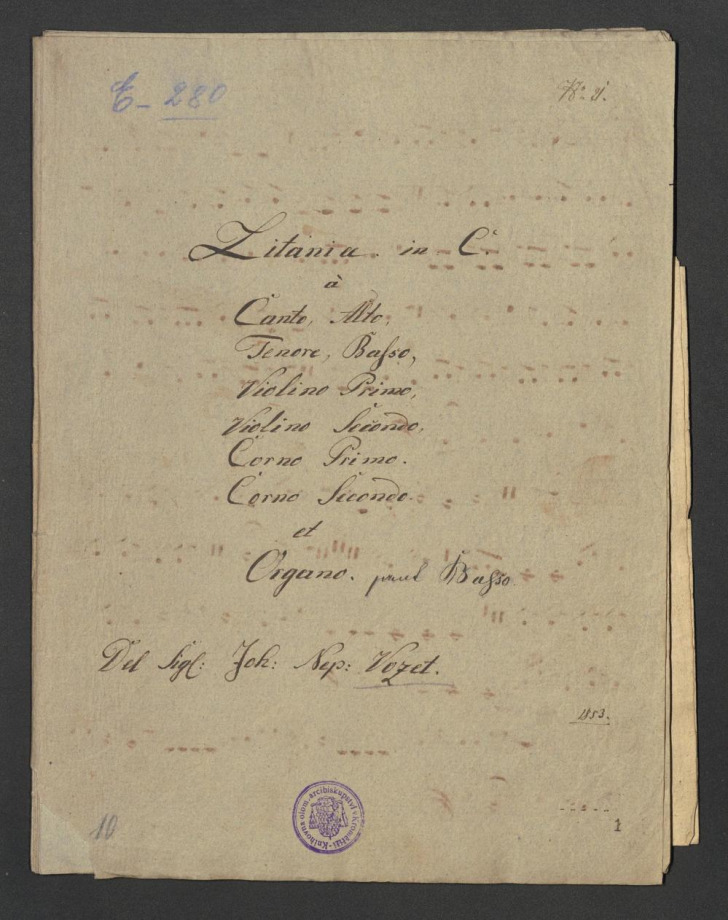 E- 280
No 21.
Litania in C
à
Canto, Alto,
Tenore, Basso,
Violino Primo,
Violino Secondo,
Corno Primo.
Corno Secondo.
et
Organo. Basso.
Del Sigl: Joh: Nep: Vozet.
1853.
Knihovna olom. arcibiskupství v Kroměříži
10
1